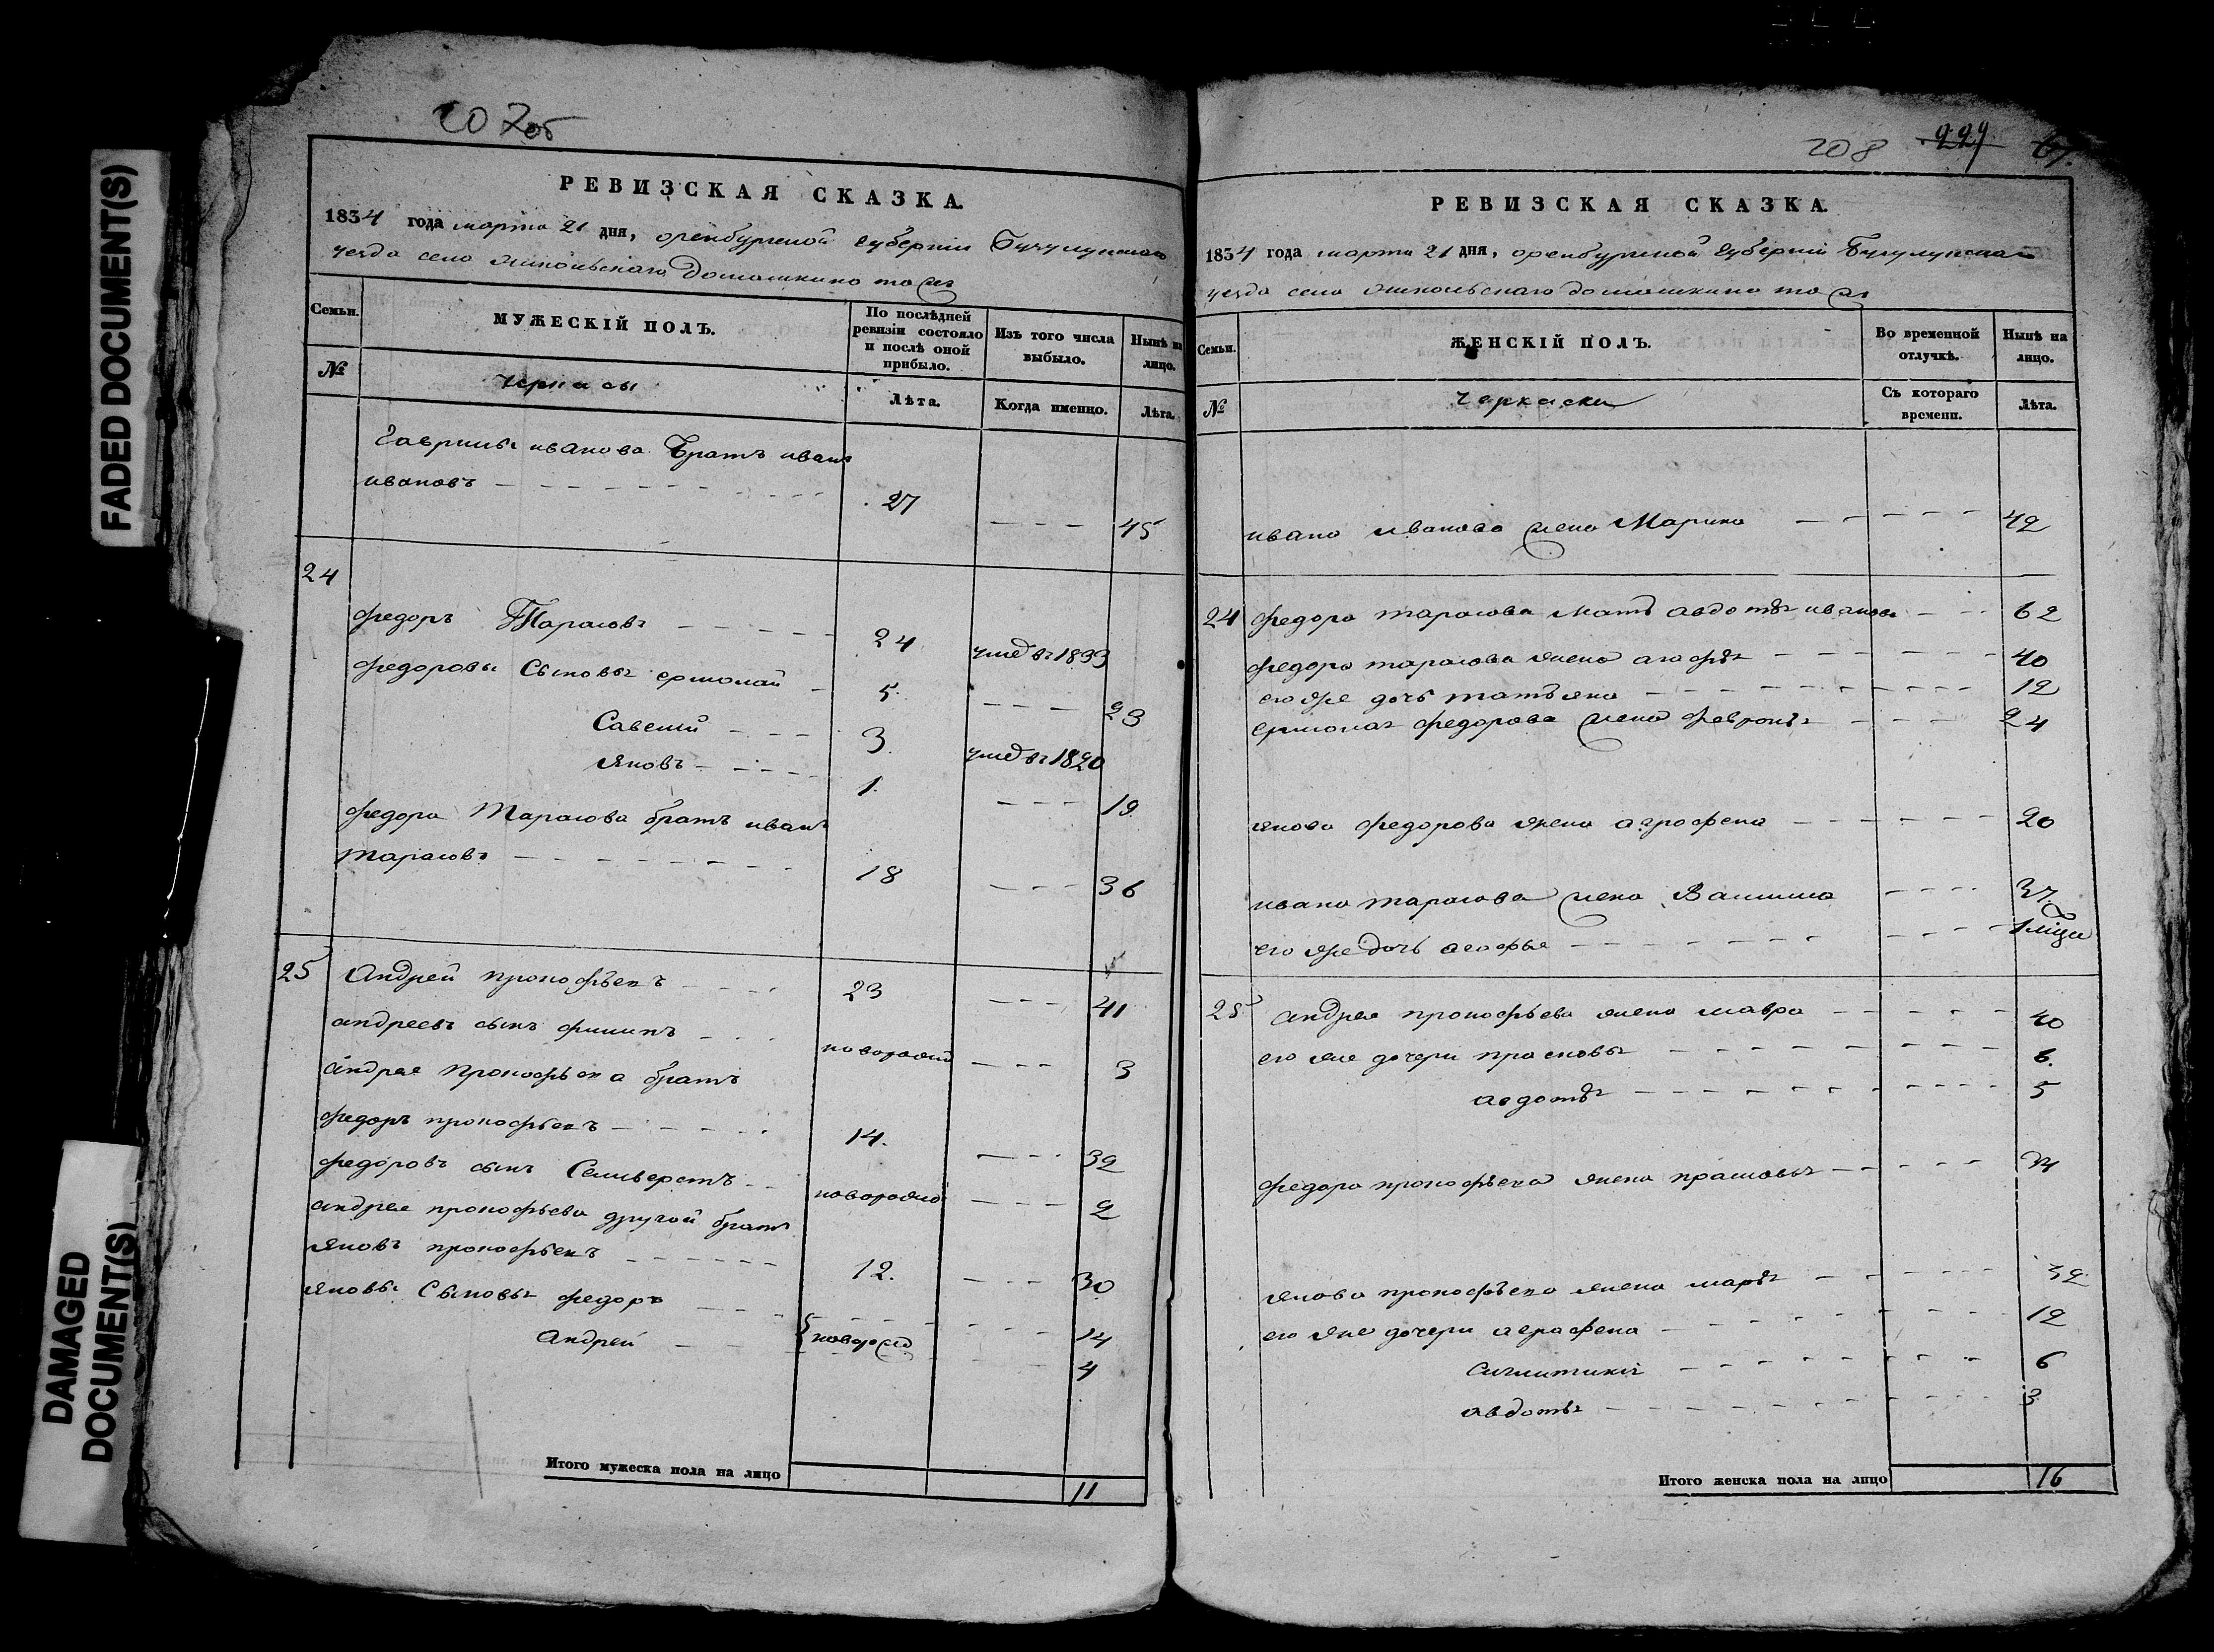 FADED DOCUMENT(S)
DAMAGED DOCUMENT(S)
207об
РЕВИЗСКАЯ СКАЗКА.
1834 года марта 21 дня, оренбургской губернии Бузулукскаго
уезда села Никольскаго Домашкино то ж
Семьи. МУЖЕСКІЙ ПОЛЪ. По послѣдней ревизіи состояло и послѣ оной прибыло. Изъ того числа выбыло. Нынѣ на лицо.
№ черкасы Лѣта. Когда именно. Лѣта.
Гаврилы иванова братъ иванъ
ивановъ 27 45
24
федоръ Тарасовъ 24 умед въ 1833
федоровы Сыновья ермолай 5. 23
Савелий 3. умед въ 1820
яковъ 1. 19
федора Тарасова братъ иванъ
тарасовъ 18 36
25 Андрей прокофьевъ 23 41
андреевъ сынъ филипъ новорожд 3
андрея прокофьева братъ
федоръ прокофьевъ 14. 32
федоровъ сынъ Селиверстъ новорожд 2
андрея прокофьева другой братъ
яковъ прокофьевъ 12. 30
яковы Сыновья федоръ 14
Андрей новорожд 4
Итого мужеска пола на лицо 11
208 229 67.
РЕВИЗСКАЯ СКАЗКА.
1834 года марта 21 дня, оренбургской губерніи Бузулукскаго
уезда села никольскаго домашкино то ж
Семьи. ЖЕНСКІЙ ПОЛЪ. Во временной отлучкѣ. Нынѣ на лицо.
№ черкаски Съ котораго времени. Лѣта.
ивана иванова жена Марина 42
24 федора тарасова мать авдотья иванова 62
федора тарасова жена агафья 40
его же дочь татьяна 12
ермолая федорова жена февронья 24
якова федорова жена аграфена 20
ивана тарасова жена Васишиа 37.
его же дочь агафья 1 меся
25 андрея прокофьева жена мавра 40
его же дочери прасковья 6.
авдотья 5
федора прокофьева жена прасковья 34
якова прокофьева жена марья 32
его же дочери аграфена 12
сиглитикия 6
авдотья 3
Итого женска пола на лицо 16